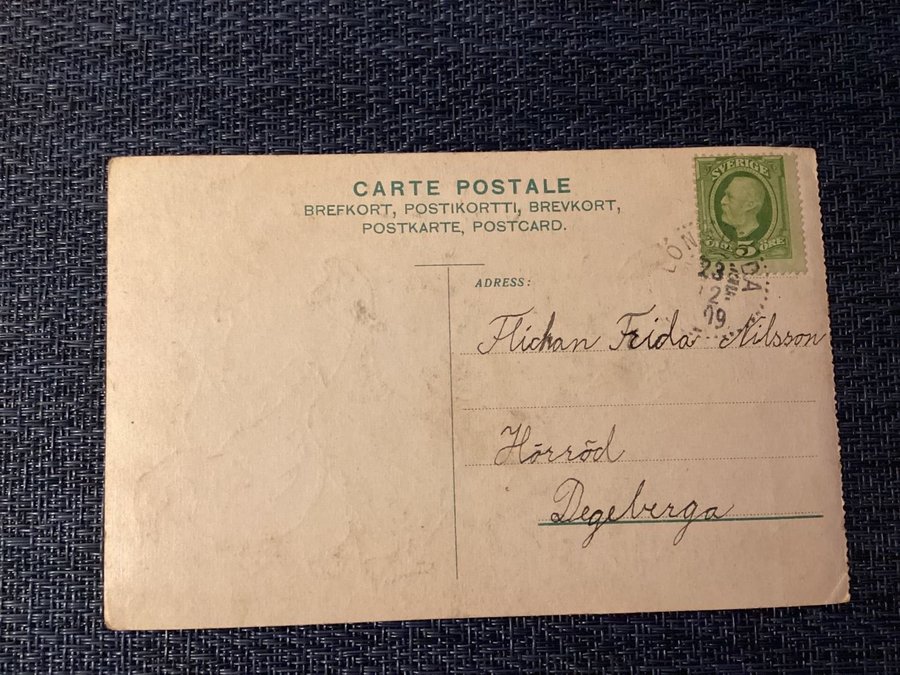 CARTE POSTALE
BREFKORT, POSTIKORTTI, BREVKORT,
POSTKARTE, POSTCARD.
SVERIGE
5 ÖRE
23
2
09
ADRESS:
Flickan Frida Nilsson
Hörröd
Degeberga